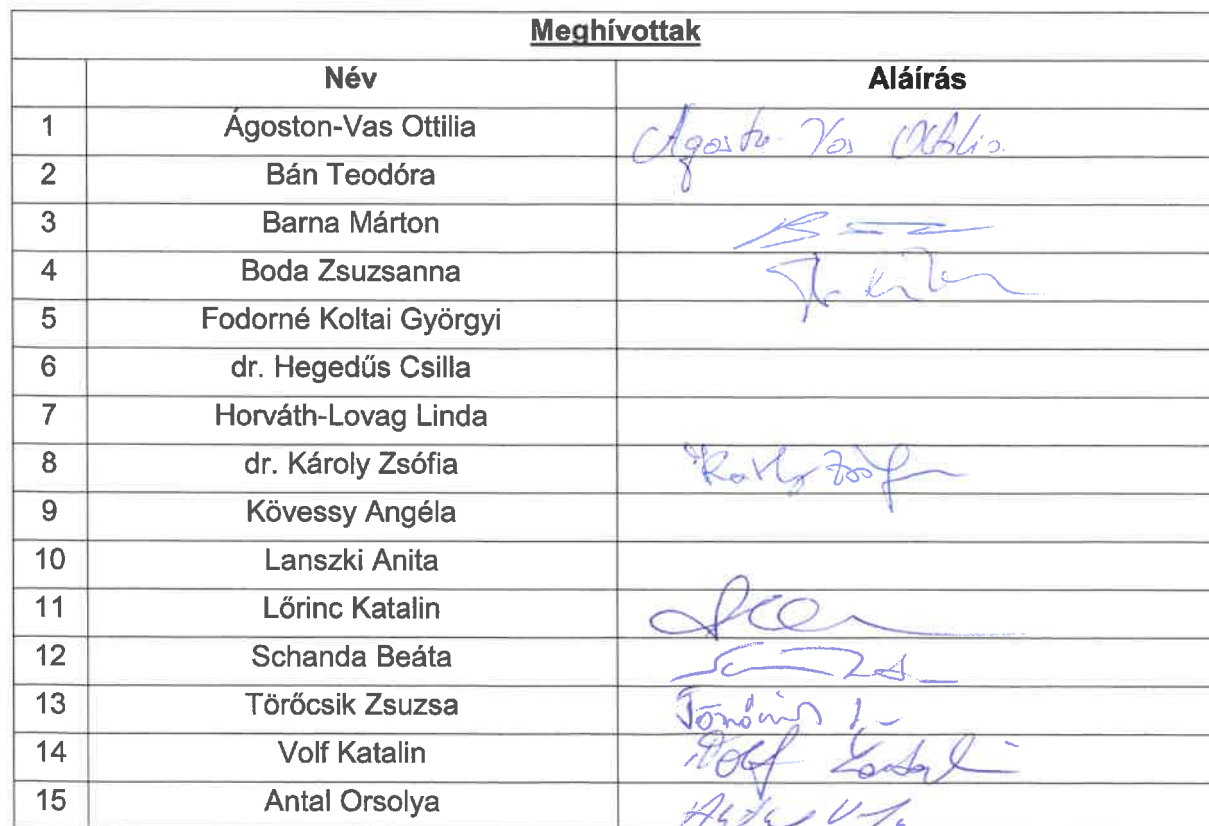 Meghívottak
Név Aláírás
1 Ágoston-Vas Ottilia Ágoston-Vas Ottilia
2 Bán Teodóra
3 Barna Márton
4 Boda Zsuzsanna
5 Fodorné Koltai Györgyi
6 dr. Hegedűs Csilla
7 Horváth-Lovag Linda
8 dr. Károly Zsófia
9 Kövessy Angéla
10 Lanszki Anita
11 Lőrinc Katalin
12 Schanda Beáta
13 Törőcsik Zsuzsa
14 Volf Katalin Volf Katalin
15 Antal Orsolya